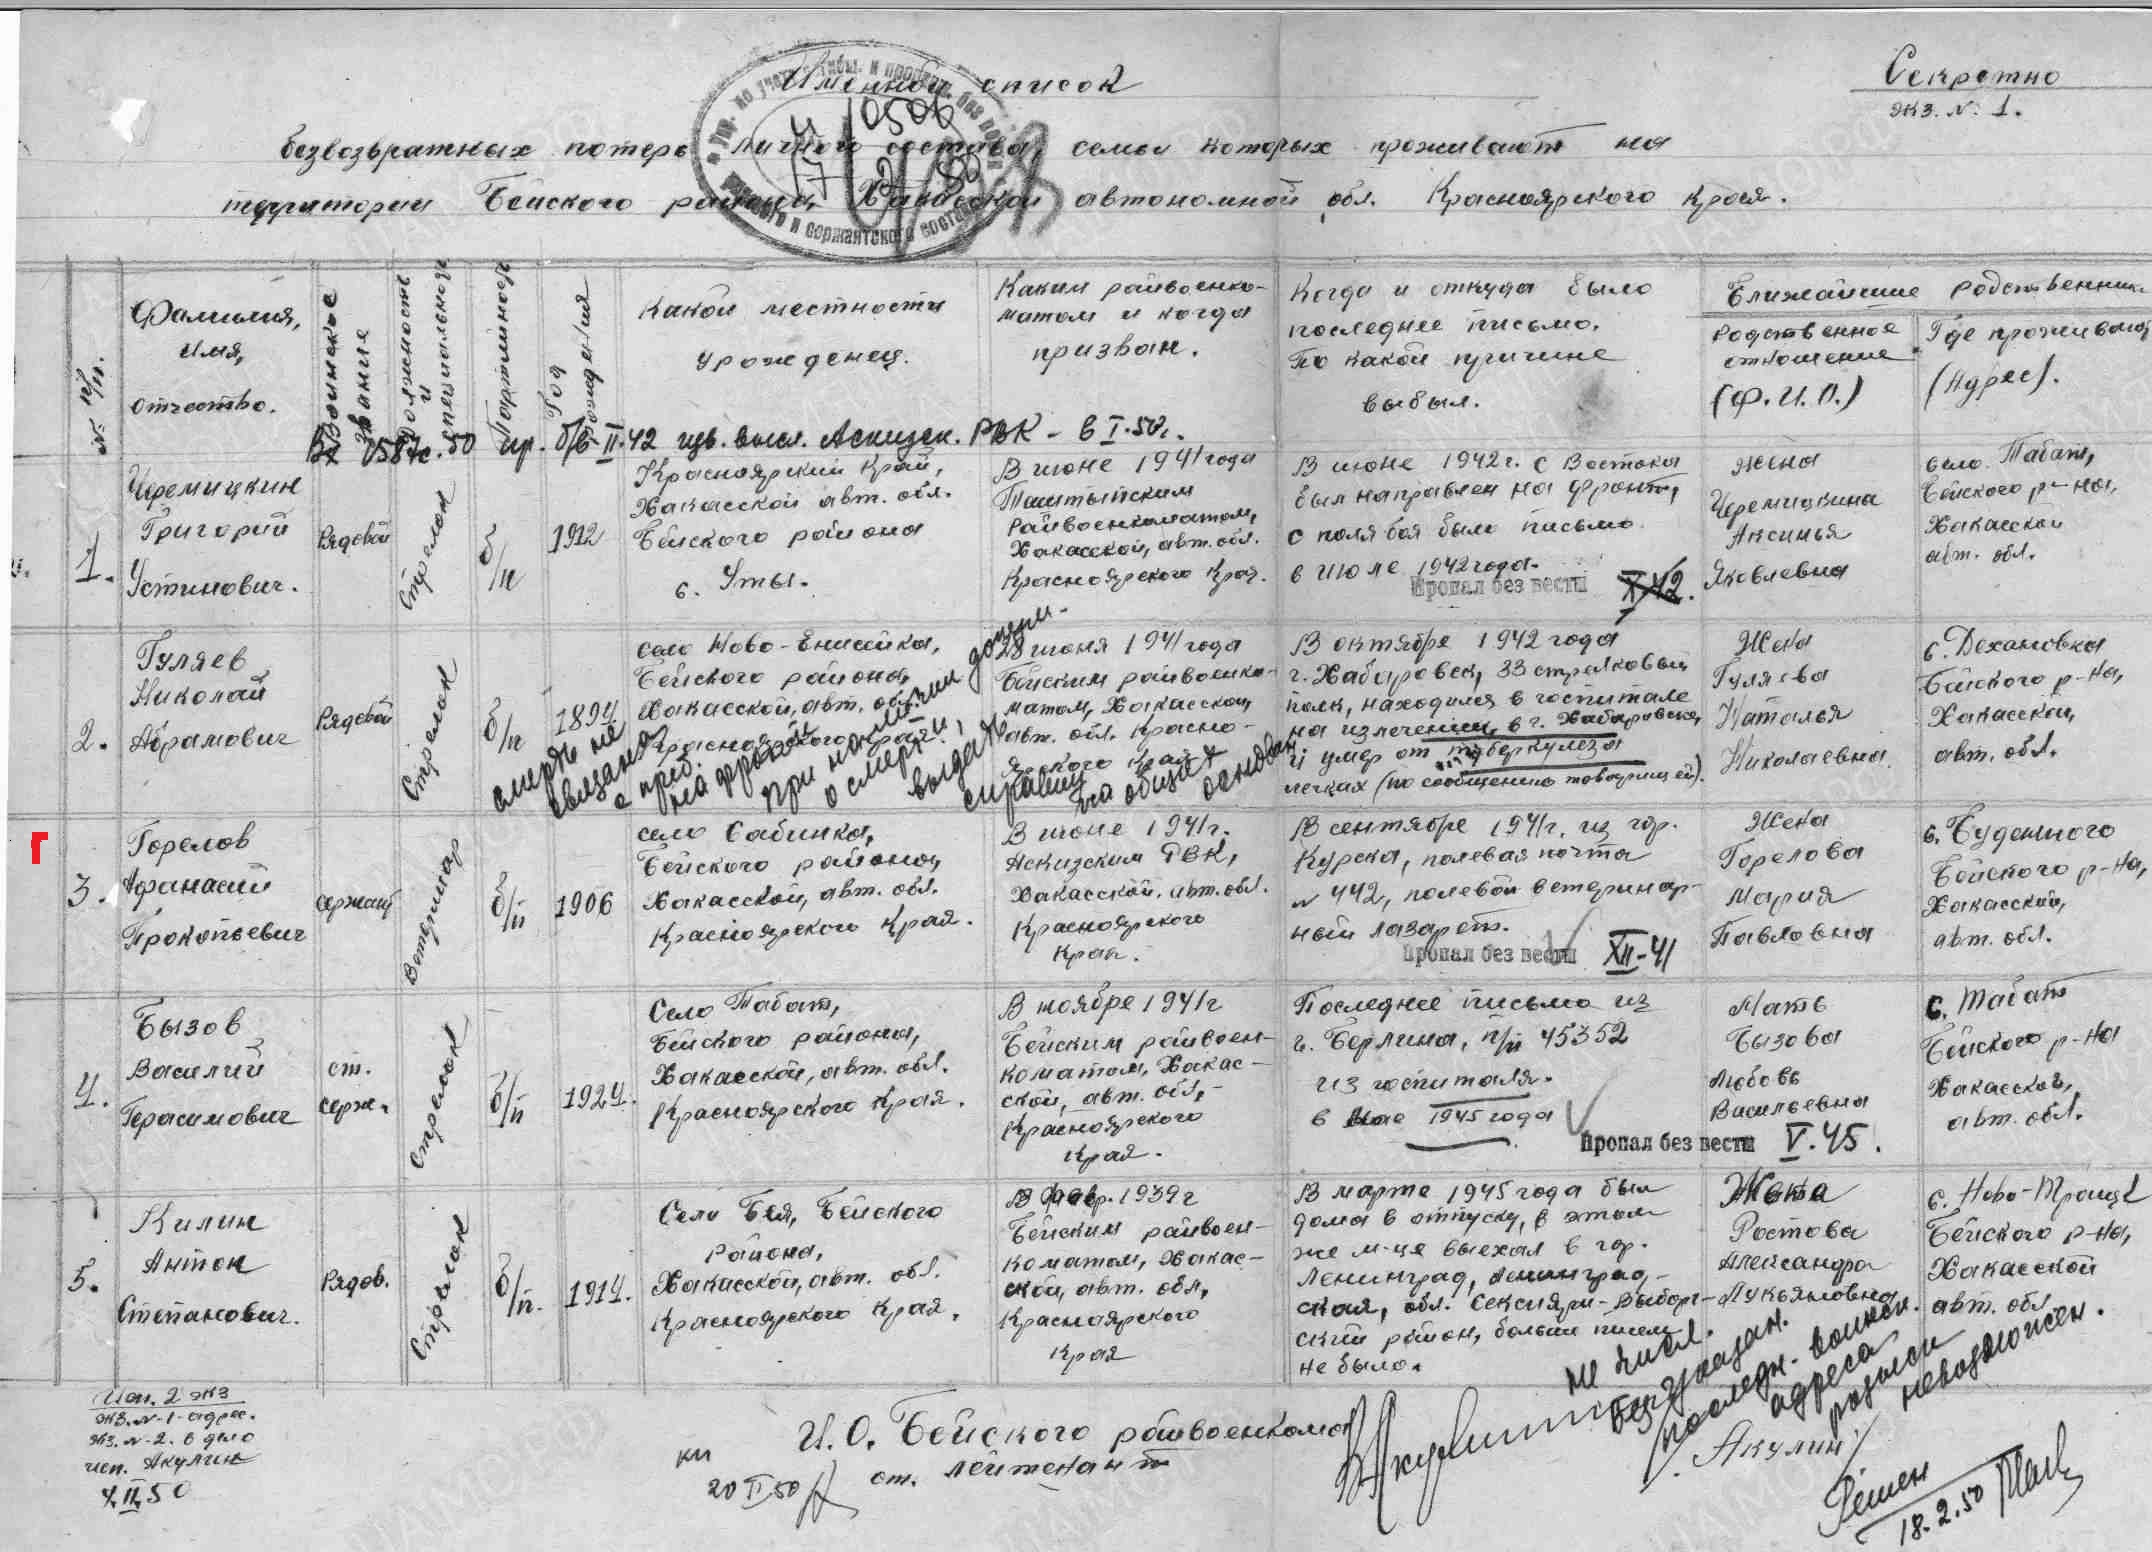 Секретно
экз. № 1.
Именной список
безвозвратных потерь личного состава, семьи которых проживают на
территории Бейского района, Хакасской автономной обл. Красноярского края.
10506
рядового и сержантского состава
№ п/п.
Фамилия,
имя,
отчество.
Воинское
звание
Должность
и
специальность
Партийность
Год
рождения
Какой местности
уроженец.
Каким райвоенко-
матом и когда
призван.
Когда и откуда было
последнее письмо.
По какой причине
выбыл.
Ближайшие родственники
Родственное
отношение
(Ф.И.О.)
Где проживают
(Адрес).
Вх 7587с.50 пр. б/в II.42 изв. высл. Аскизск. РВК - в I.50г.
1.
Черемицкин
Григорий
Устинович.
Рядовой
Стрелок
б/п
1912
Красноярский Край,
Хакасской авт. обл.
Бейского района
с. Уты.
В июне 1941 года
Таштыпским
Райвоенкоматом,
Хакасской, авт. обл.
Красноярского Края.
В июне 1942г. с Востока
был направлен на фронт,
с поля боя было письмо
в июле 1942 года.
Пропал без вести X.42.
Жена
Черемицкина
Аксинья
Яковлевна
село Табат,
Бейского р-на,
Хакасской
авт. обл.
2.
Гуляев
Николай
Абрамович
Рядовой
Стрелок
б/п
1894
село Ново-Енисейка,
Бейского района,
Хакасской, авт. обл.
Красноярского края.
28 июня 1941 года
Бейским райвоенко-
матом, Хакасской,
авт. обл. Красно-
ярского края
В октябре 1942 года
г. Хабаровск, 33 стрелковый
полк, находился в госпитале
на излечении, в г. Хабаровске,
и умер от туберкулеза
легких (по сообщению товарищей).
Жена
Гуляева
Наталья
Николаевна
с. Дехановка
Бейского р-на,
Хакасской,
авт. обл.
смерть не
связана
с преб.
на фронте
при наличии докум.
о смерти,
выдать
справку
на общих
основан.
3.
Горелов
Афанасий
Прокопьевич
сержант
Ветфельдшер
б/п
1906
село Сабинка,
Бейского района,
Хакасской, авт. обл.
Красноярского Края.
В июне 1941г.
Аскизским РВК,
Хакасской, авт. обл.
Красноярского
Края.
В сентябре 1941г. из гор.
Курска, полевая почта
№ 442, полевой ветеринар-
ный лазарет.
Пропал без вести XII-41
Жена
Горелова
Мария
Павловна
с. Буденного
Бейского р-на,
Хакасской,
авт. обл.
4.
Бызов
Василий
Герасимович
ст.
серж.
Стрелок
б/п
1924.
Село Табат,
Бейского района,
Хакасской, авт. обл.
Красноярского края.
В ноябре 1941г
Бейским райвоен-
коматом, Хакас-
ской, авт. обл,-
Красноярского
Края.
Последнее письмо из
г. Берлина, п/п 45352
из госпиталя.
в мае 1945 года
Пропал без вести V.45.
Мать
Бызова
Любовь
Васильевна
с. Табат
Бейского р-на
Хакасской,
авт. обл.
5.
Килин
Антон
Степанович.
Рядов.
Стрелок
б/п.
1914.
Село Бея, Бейского
района,
Хакасской, авт. обл.
Красноярского края.
В февр. 1939г
Бейским райвоен-
коматом, Хакас-
ской, авт. обл,
Красноярского
края
В марте 1945 года был
дома в отпуску, в этом
же м-це выехал в гор.
Ленинград, Ленинград-
ская, обл. Сексияри-Выборг-
ский район, больше писем
не было.
Жена
Ростова
Александра
Лукьяновна.
с. Ново-Троицк
Бейского р-на,
Хакасской
авт. обл
не числ.
Без указан.
последн. воинск.
адреса
розыск
невозможен.
Исп. 2 экз
экз. №-1-адрес.
экз. №-2. в дело
исп. Акулин
4.II.50
кп
20 II 50
И.О. Бейского райвоенкома
ст. лейтенант
/Акулин/
Решен
18.2.50